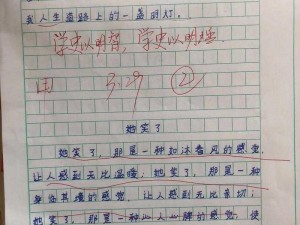 我人生道路上的一盏明灯。
学史以明智，学史以明
甲 3.29 ②
她笑了
她笑了，那是一种如沐春风的感觉，
让人感到无比温暖；她笑了，那是一种
身临其境的感觉，让人感到无比亲切；
她笑了，那是一种沁人心脾的感觉，使